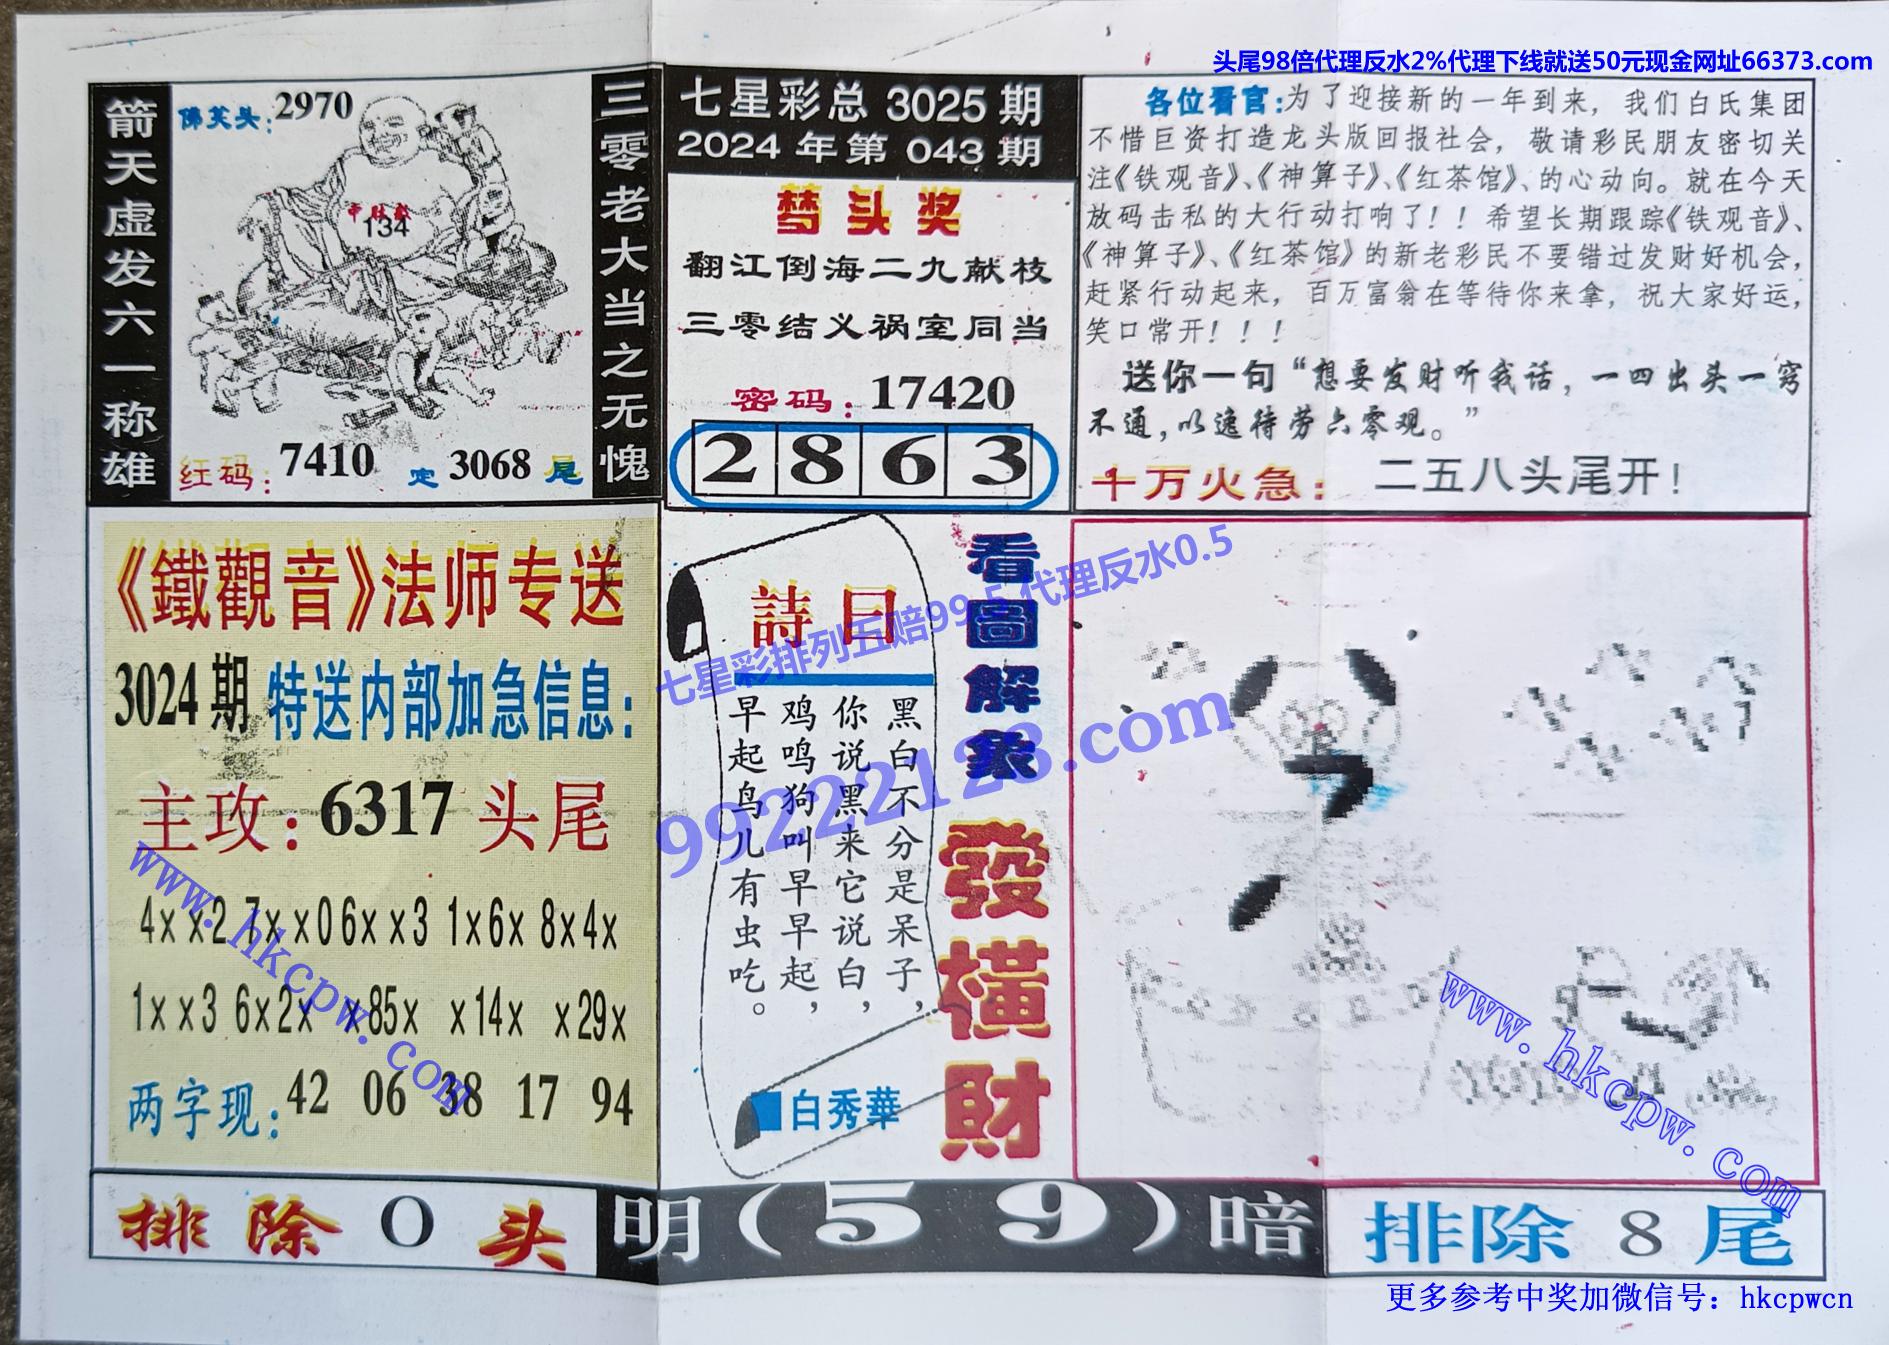 头尾98倍代理反水2%代理下线就送50元现金网址66373.com
箭天虚发六一称雄
佛笑头:2970
134
红码:7410 定3068尾
三零老大当之无愧
七星彩总3025期
2024年第043期
梦头奖
翻江倒海二九献枝
三零结义祸室同当
密码:17420
2863
各位看官:为了迎接新的一年到来，我们白氏集团
不惜巨资打造龙头版回报社会，敬请彩民朋友密切关
注《铁观音》、《神算子》、《红茶馆》、的心动向。就在今天
放码击私的大行动打响了！！希望长期跟踪《铁观音》、
《神算子》、《红茶馆》的新老彩民不要错过发财好机会，
赶紧行动起来，百万富翁在等待你来拿，祝大家好运，
笑口常开！！！
送你一句“想要发财听我话，一四出头一窍
不通，以逸待劳六零观。”
十万火急：二五八头尾开！
《鐵觀音》法师专送
3024期 特送内部加急信息:
主攻:6317头尾
4××2 7××0 6××3 1×6× 8×4×
1××3 6×2× ×85× ×14× ×29×
两字现:42 06 38 17 94
詩目
黑白不分是呆子，
你说黑来它说白，
鸡鸣狗叫早早起，
早起鸟儿有虫吃。
白秀華
看圖解象
發橫財
七星彩排列五赔99.5 代理反水0.5
99222128.com
www.hkcpw.com
www.hkcpw.com
排除0头
明(59)暗
排除8尾
更多参考中奖加微信号：hkcpwcn